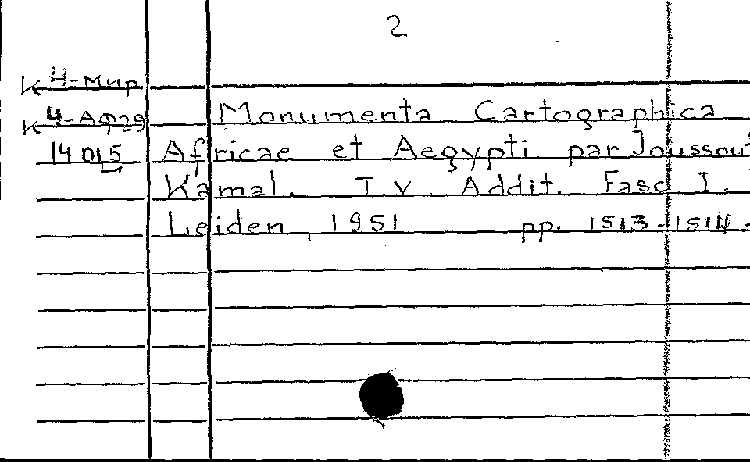 2
К 4-Мир
К 4-АФ29
14015 
Monumenta Cartographica
Africae et Aegypti par Joussouf
Kamal. T. V. Addit. Fasc I.
Leiden, 1951 pp. 1513-1514.